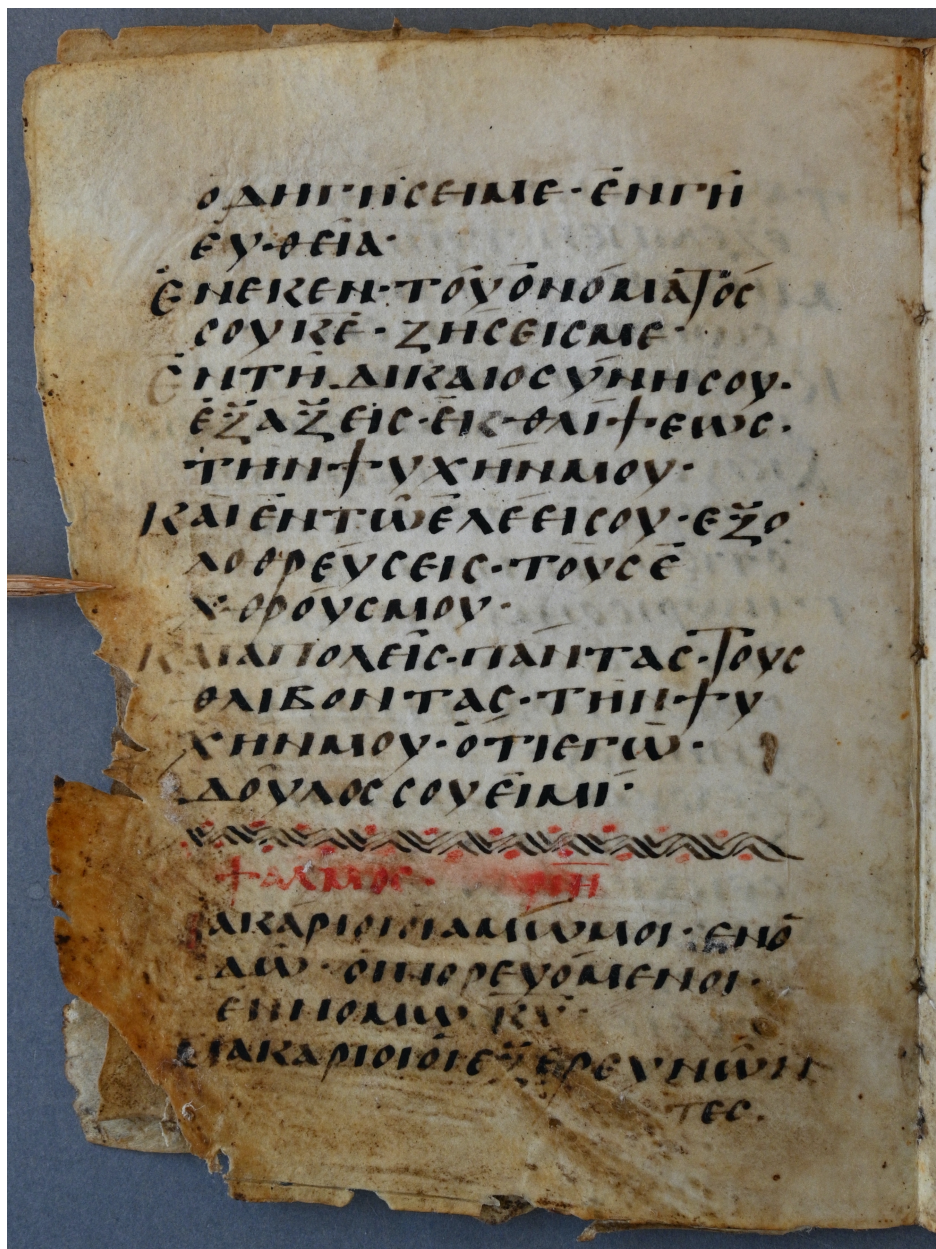 ὁΔΗΓΗΣΕΙΜΕ · ἐΝΓΗ
ΕΥΘΕΙΑ·
ἐΝΕΚΕΝ·ΤΟΥὀΝΟΜΑΤΟΣ
ΣΟΥΚΕ̅ · ΖΗΣΕΙΣΜΕ·
ἐΝΤΗ ΔΙΚΑΙΟΣΥΝΗΣΟΥ·
ἐΞΑΞΕΙΣ·ἐΚ·ΘΛΙΨΕΩΣ·
ΤΗΝΨΥΧΗΝΜΟΥ·
ΚΑΙἐΝΤΩἐΛΕΕΙΣΟΥ·ΕΞΟ
ΛΟΘΡΕΥΣΕΙΣ·ΤΟΥΣἐ
ΧΘΡΟΥΣΜΟΥ·
ΚΑΙΑΠΟΛΕΙΣ·ΠΑΝΤΑΣ·ΤΟΥΣ
ΘΛΙΒΟΝΤΑΣ·ΤΗΝ·ΨΥ
ΧΗΝΜΟΥ·ὁΤΙΕΓΩ·
ΔΟΥΛΟΣΣΟΥΕΙΜΙ·
ΨΑΛΜΟΣ· ΡΙΗ
ΜΑΚΑΡΙΟΙΟΙΑΜΩΜΟΙ·ΕΝΟ
ΔΩ·ΟΙΠΟΡΕΥΟΜΕΝΟΙ·
ΕΝΝΟΜΩ ΚΥ̅·
ΜΑΚΑΡΙΟΙΟΙΕΞΕΡΕΥΝΩΝ
ΤΕΣ.